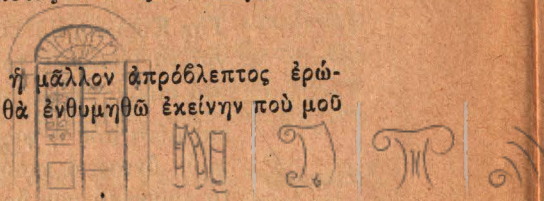 ἢ μᾶλλον ἀπρόβλεπτος ἐρώ-
θὰ ἐνθυμηθῶ ἐκείνην ποὺ μοῦ